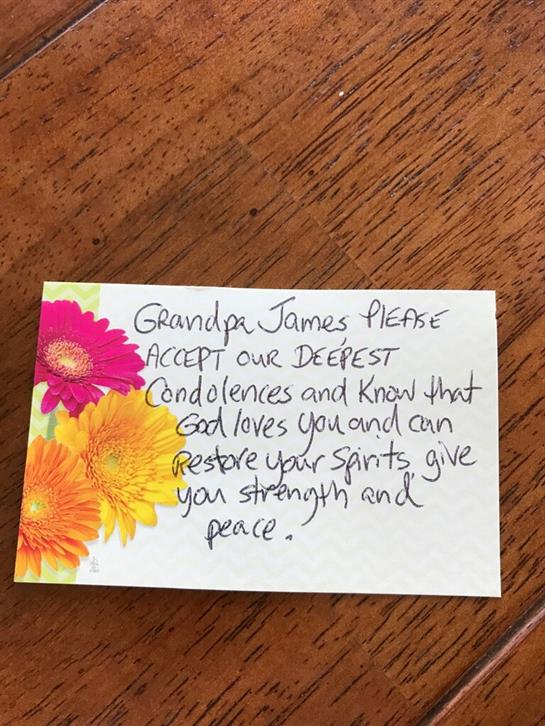 Grandpa James PLEASE
ACCEPT OUR DEEPEST
Condolences and Know that
God loves You and can
Restore your Spirits, give
you strength and
peace.